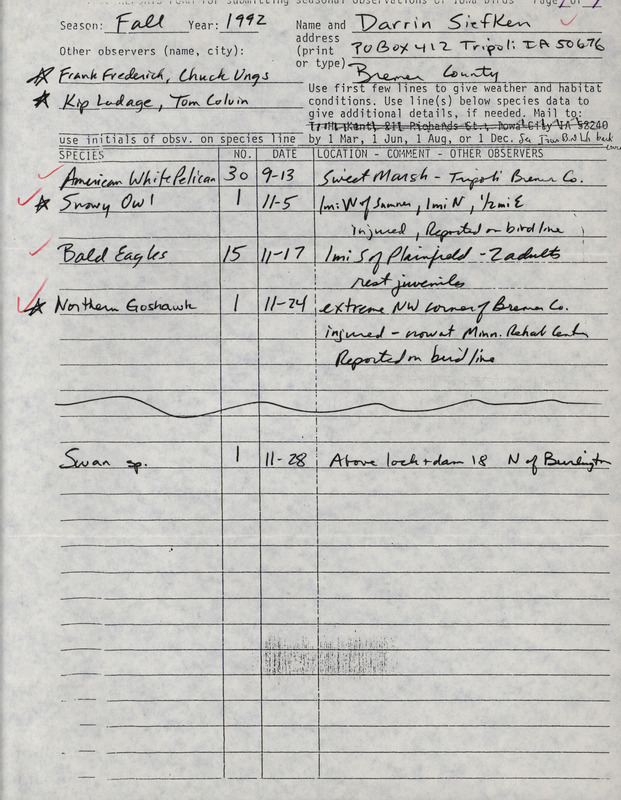 REPORTS Form for submitting seasonal observations of Iowa birds Page 1 of
Season: Fall Year: 1992 Name and Darrin Siefken
address
Other observers (name, city): (print PO Box 412 Tripoli IA 50676
or type) Bremer County
★ Frank Frederick, Chuck Ungs
★ Kip Ladage, Tom Colvin
Use first few lines to give weather and habitat
conditions. Use line(s) below species data to
give additional details, if needed. Mail to:
use initials of obsv. on species line by 1 Mar, 1 Jun, 1 Aug, or 1 Dec.
SPECIES NO. DATE LOCATION - COMMENT - OTHER OBSERVERS
American White Pelican 30 9-13 Sweet Marsh - Tripoli Bremer Co.
★ Snowy Owl 1 11-5 1mi W of Sumner, 1mi N, 1/2 mi E
injured, Reported on birdline
Bald Eagles 15 11-17 1mi S of Plainfield - 2 adults
rest juveniles
★ Northern Goshawk 1 11-24 extreme NW corner of Bremer Co.
injured - now at Minn. Rehab Center
Reported on birdline
Swan sp. 1 11-28 Above lock + dam 18 N of Burlington